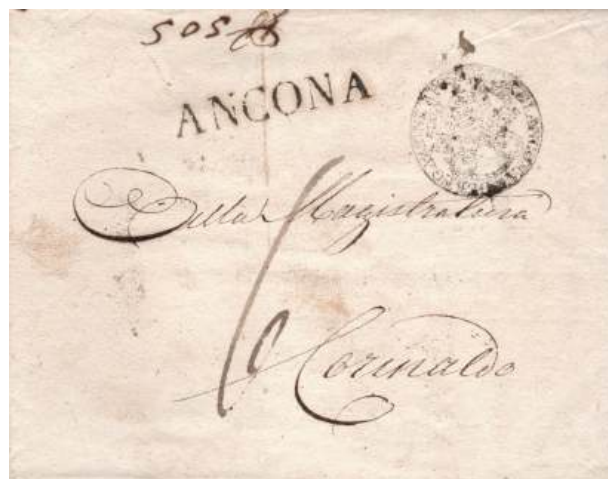 505
ANCONA
Alla Magistratura
Corinaldo